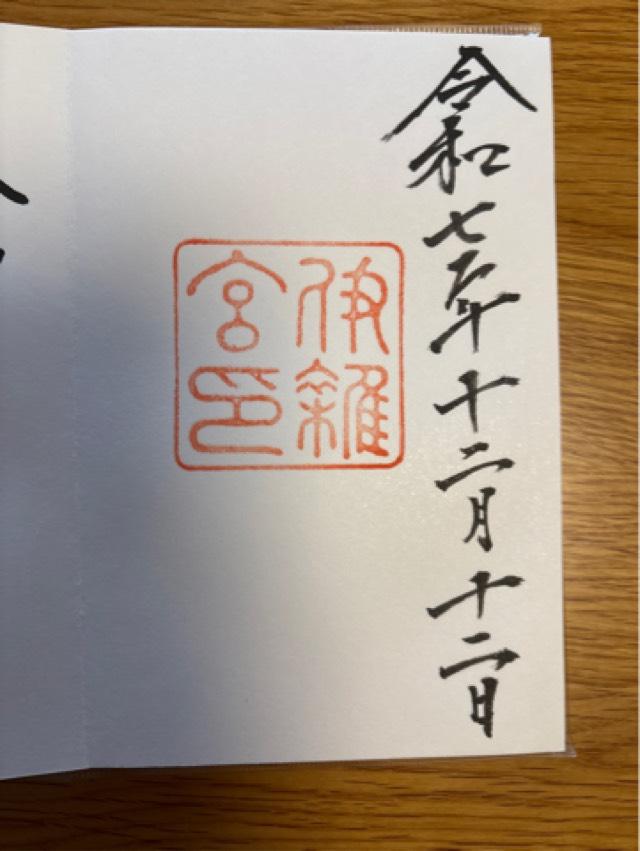 令和七年十二月十二日
伊雜
宮印